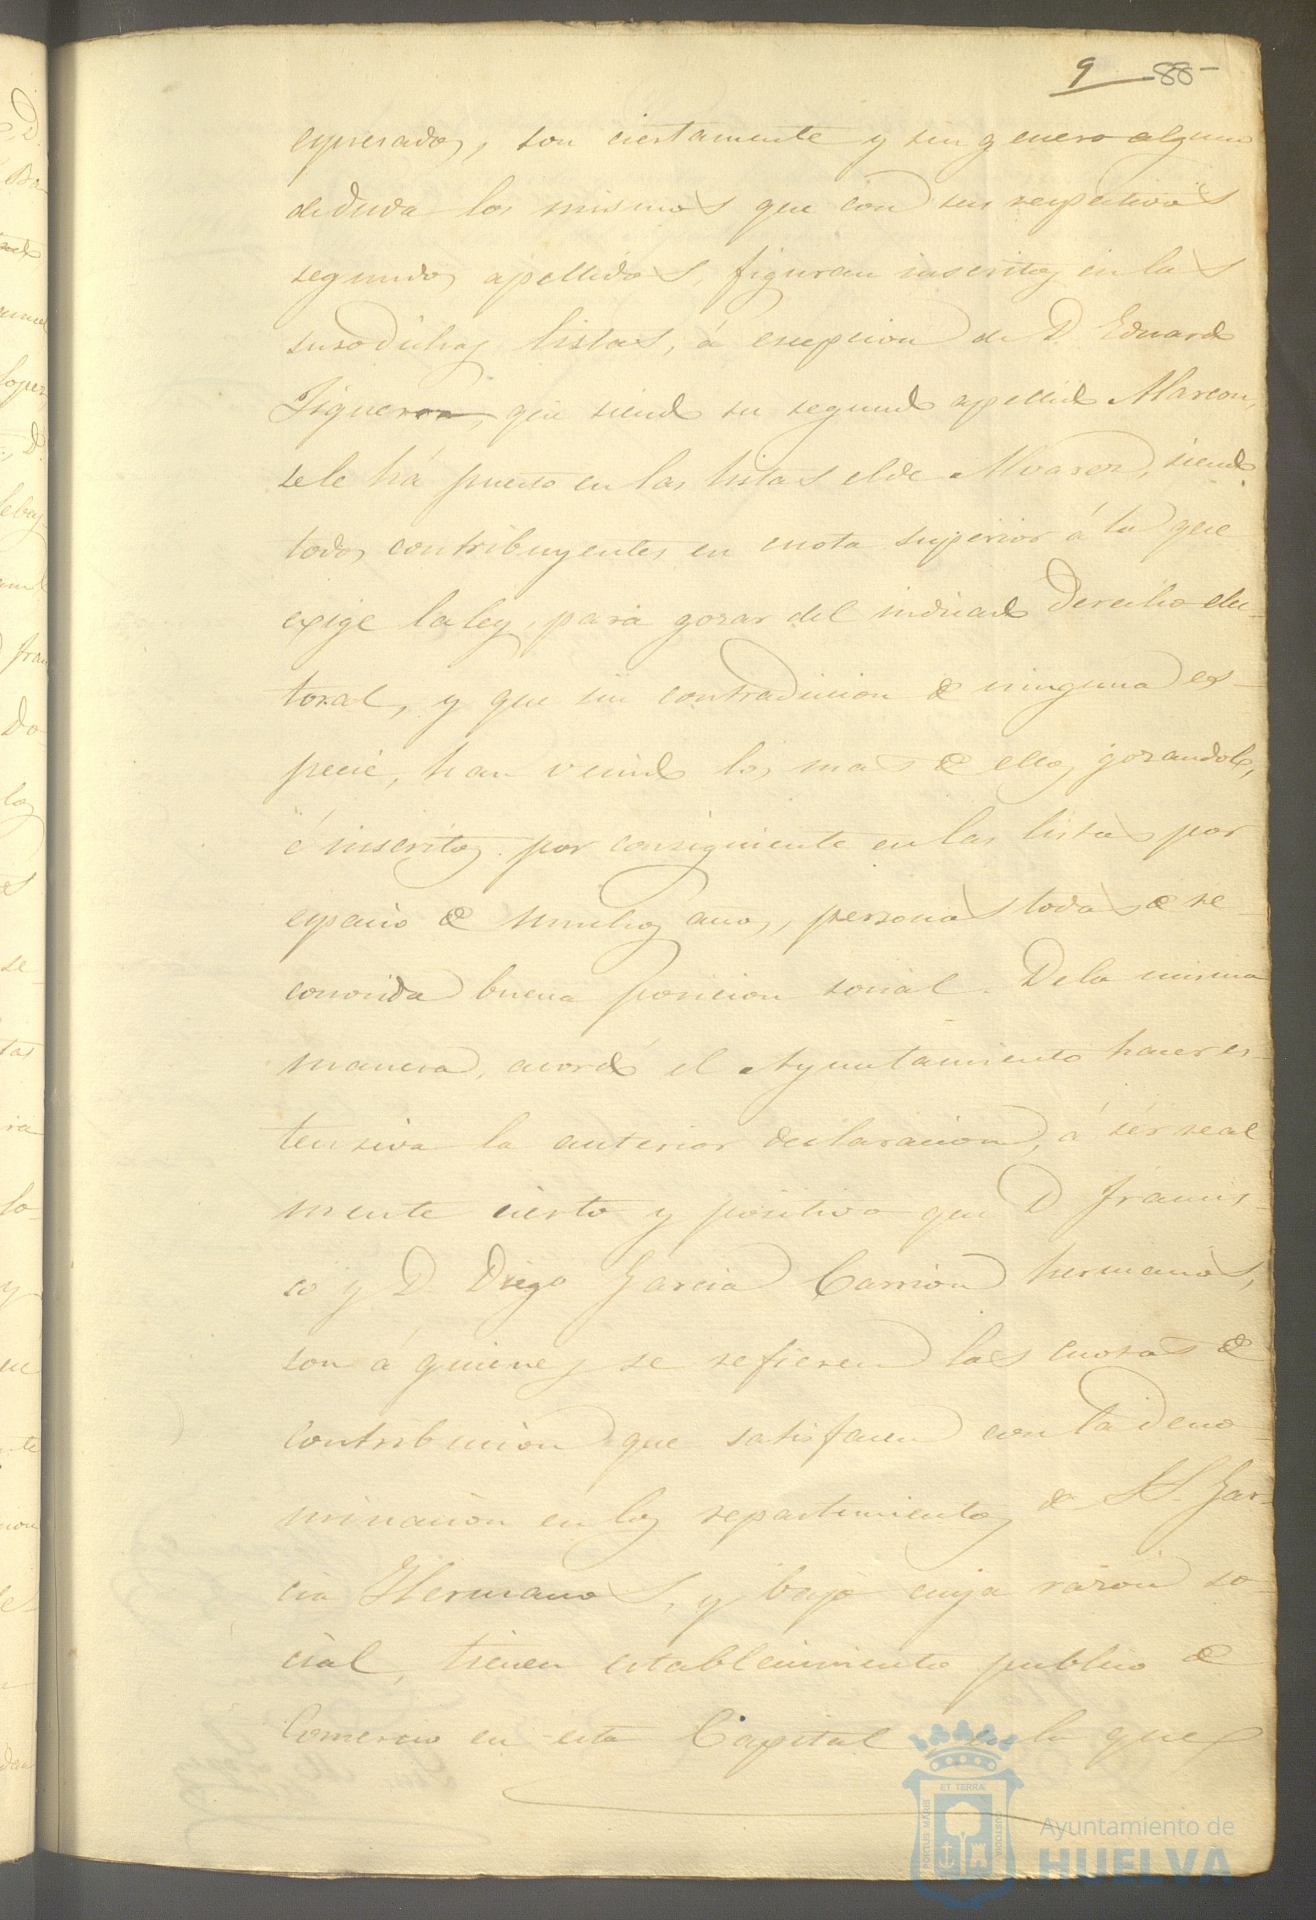 9 88
espresados, son ciertamente y sin genero alguno
de duda los mismos que con sus respectivos
segundos apellidos, figuran inscritos en las
susodichas listas, á escepcion de D. Eduardo
Figueroa, que siendo su segundo apellido Marcon,
se le há puesto en las listas el de Alvarez, siendo
todos contribuyentes en cuota superior á la que
exige la ley, para gozar del indicado Derecho elec-
toral, y que sin contradiccion de ninguna es-
pecie, han venido los mas de ellos gozandolo,
é inscritos por consiguiente en las listas por
espacio de muchos años, personas todas de re-
conocida buena posicion social. De la misma
manera, acordó el Ayuntamiento hacer es-
tensiva la anterior declaracion, á sér real
mente cierto y positivo que D Francis-
co y D Diego Garcia Carrion hermanos,
son á quienes se refieren las cuotas de
contribucion que satisfacen con la deno-
minacion en los repartimientos de S.S. Gar-
cia Hermanos, y bajo cuya razon so-
cial, tienen establecimiento publico de
Comercio en esta Capital en la que
PORTUS MARIS
ET TERRAE
CUSTODIA
Ayuntamiento de
HUELVA